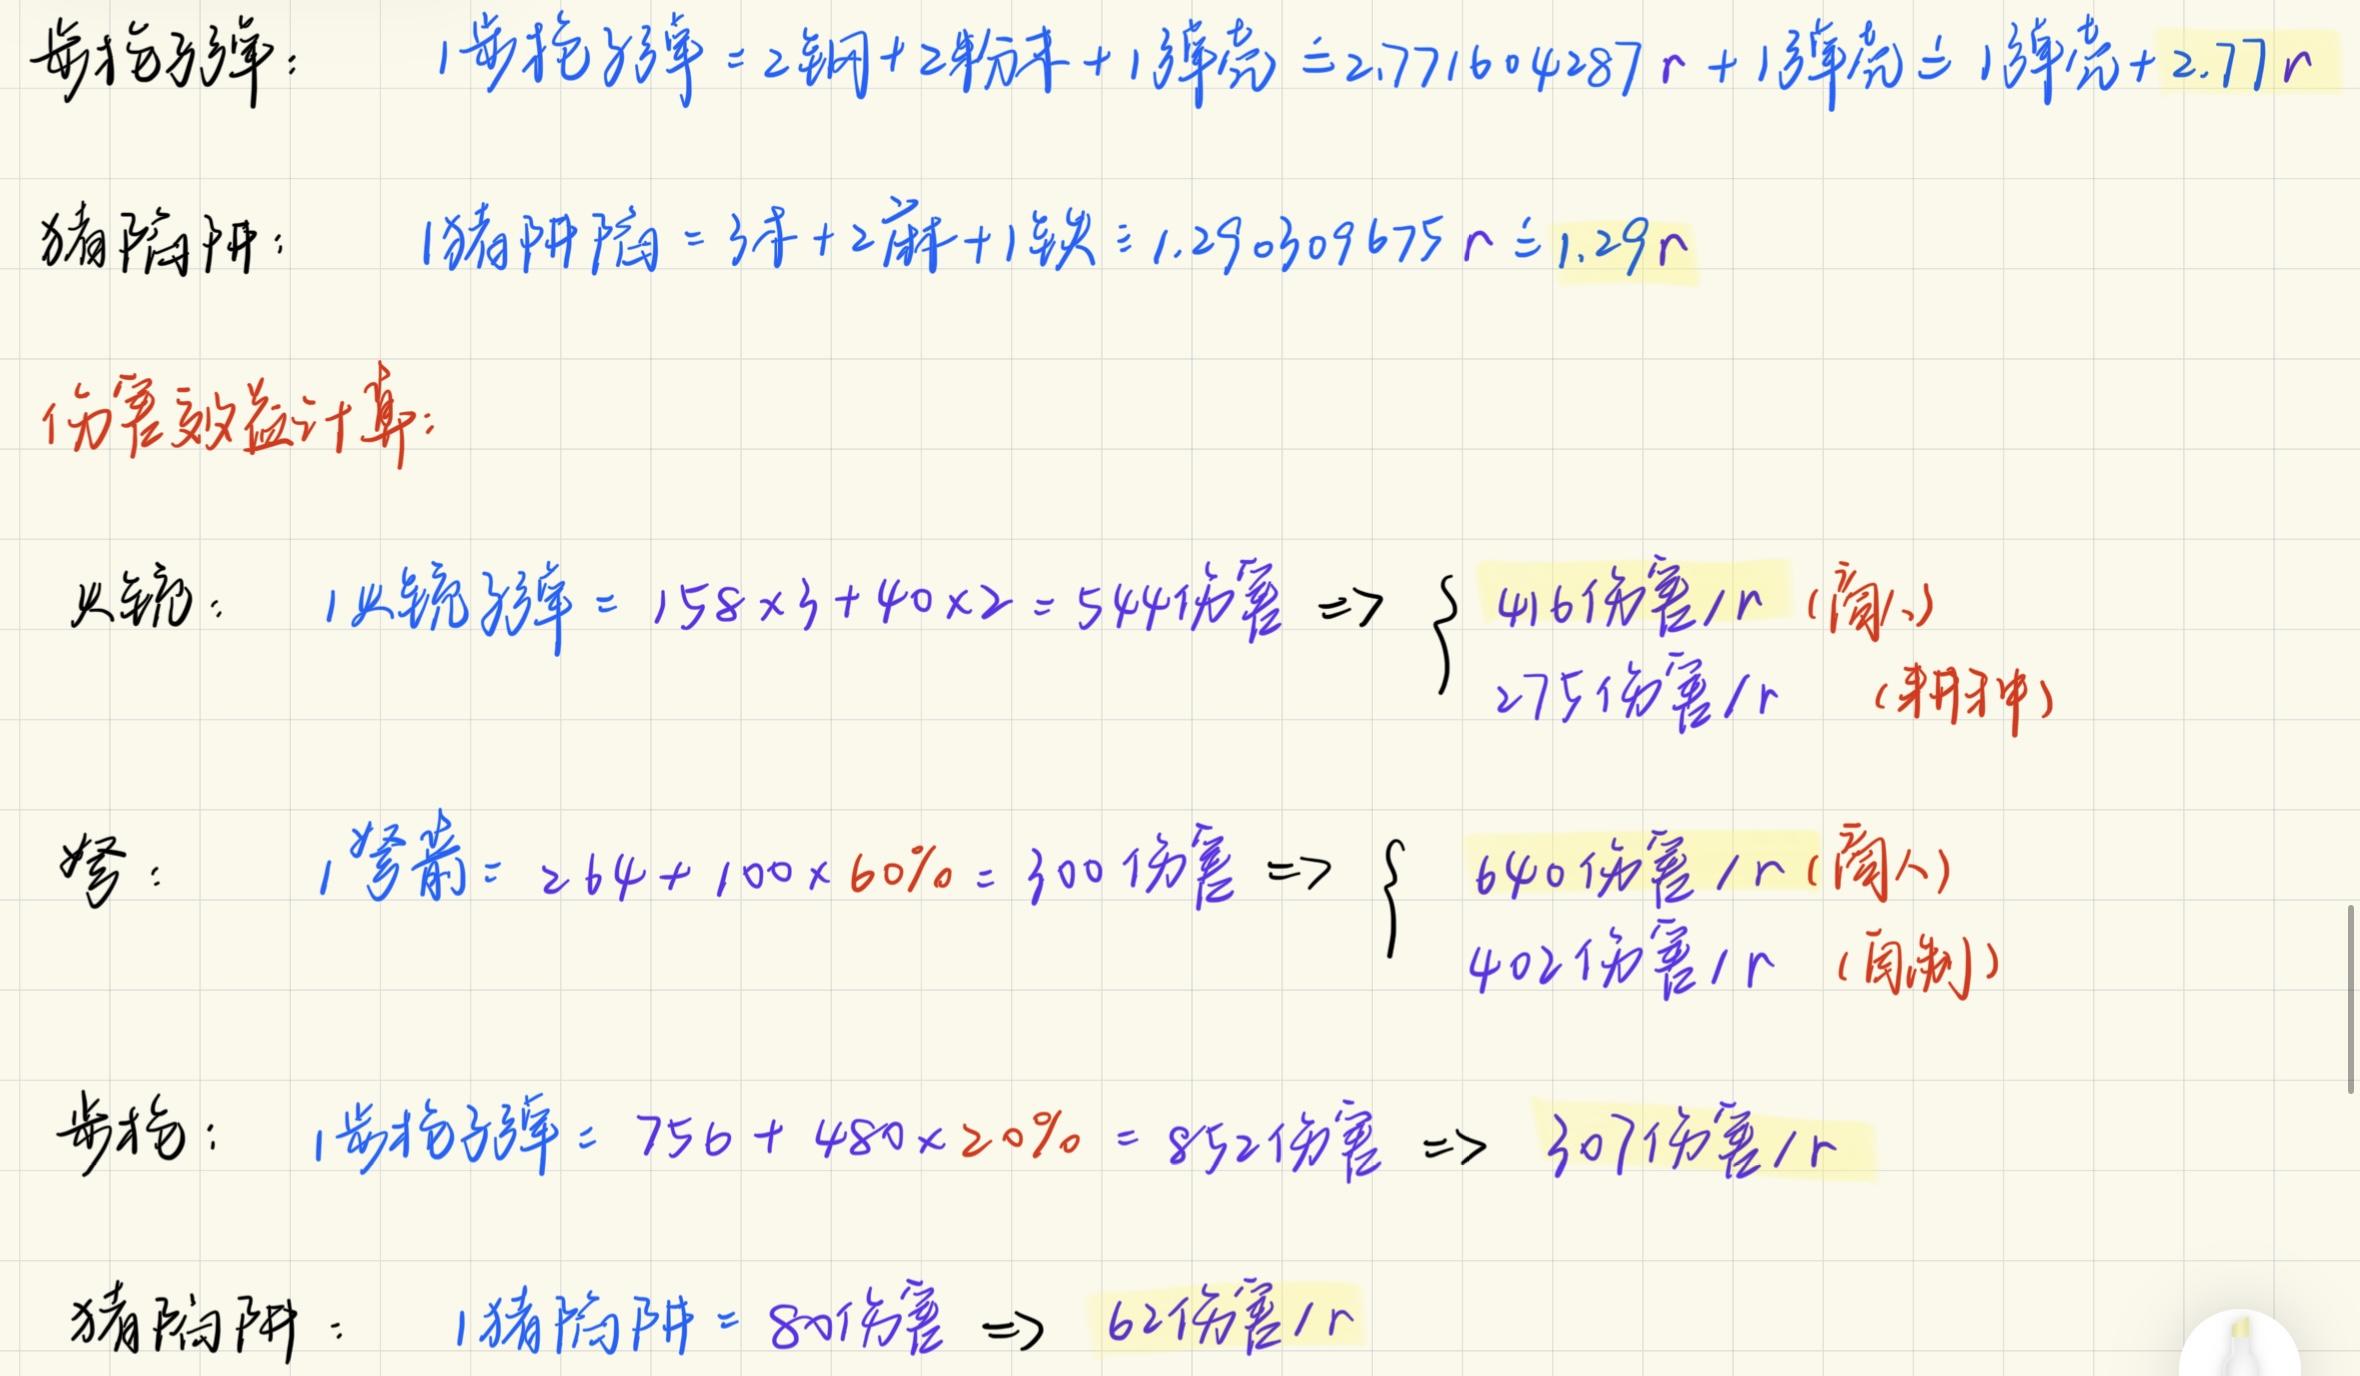 步枪子弹： 1步枪子弹 = 2钢 + 2粉末 + 1弹壳 ≐ 2.771604287 r + 1弹壳 ≐ 1弹壳 + 2.77 r
猪陷阱： 1猪阱陷 = 3木 + 2麻 + 1铁 ≐ 1.290309675 r ≐ 1.29 r
伤害效益计算：
火铳： 1火铳子弹 = 158×3 + 40×2 = 544伤害 => { 416伤害/r (商人)
275伤害/r (耕种)
弩： 1弩箭 = 264 + 100×60% = 300伤害 => { 640伤害/r (商人)
402伤害/r (自制)
步枪： 1步枪子弹 = 756 + 480×20% = 852伤害 => 307伤害/r
猪陷阱： 1猪陷阱 = 80伤害 => 62伤害/r